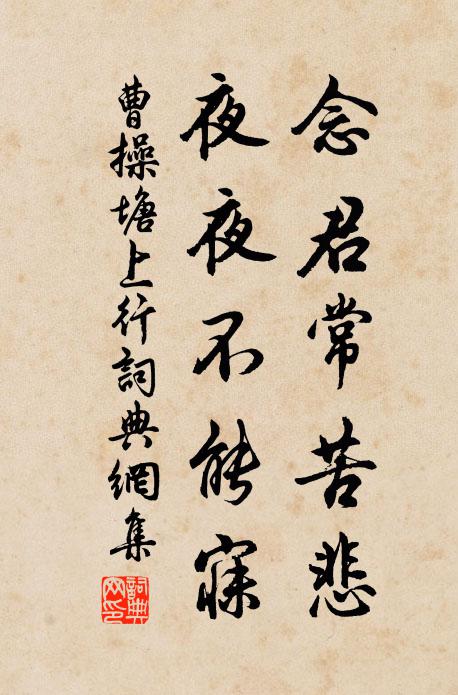 念君常苦悲
夜夜不能寐
曹操塘上行詞典網集
詞典
网印